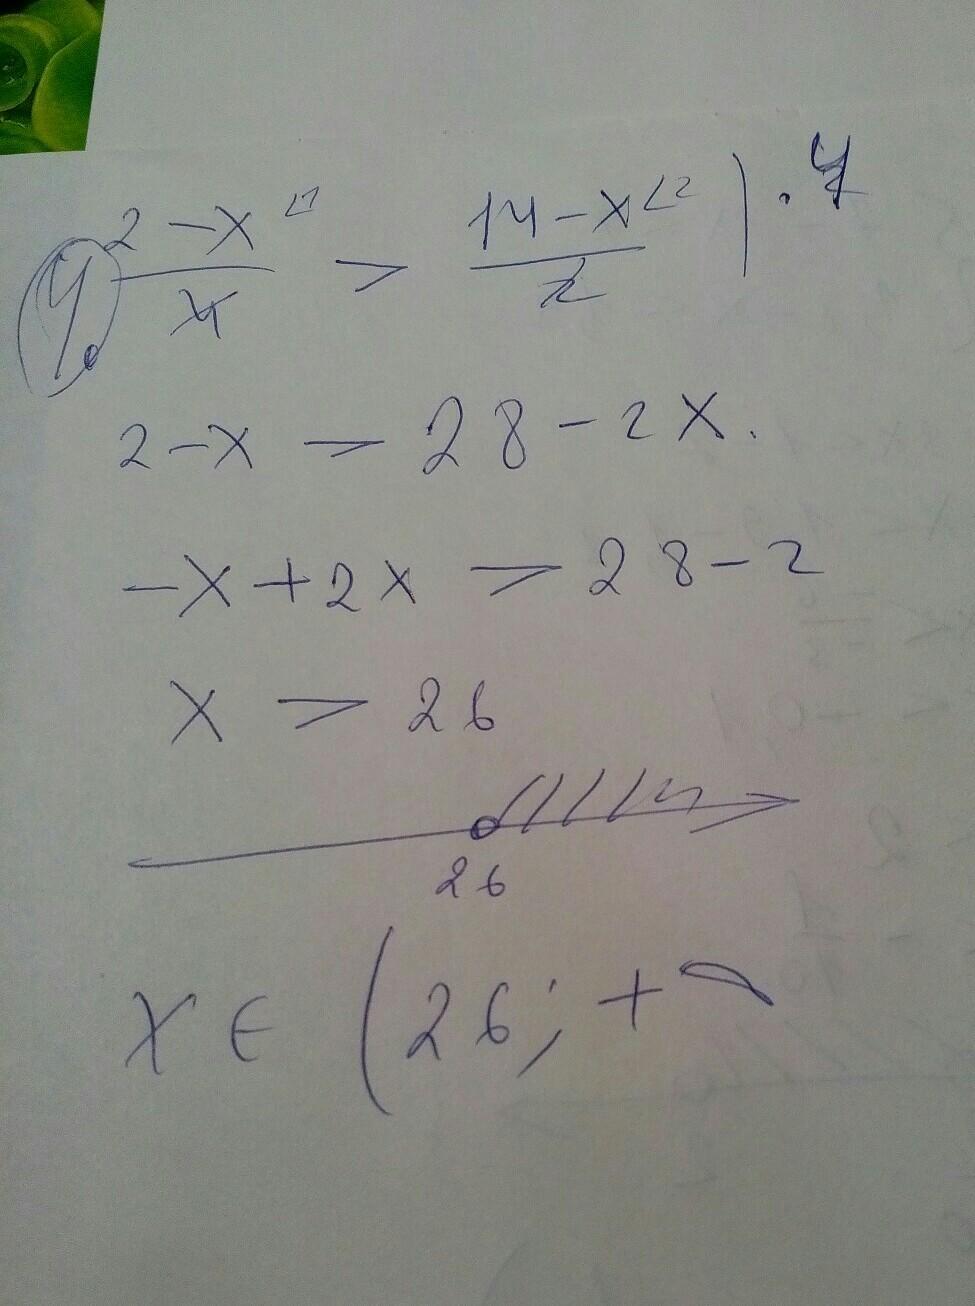 4. (2-x)/4 > (14-x)/2 | · 4
2-x > 28-2x.
-x+2x > 28-2
x > 26
26
x ∈ (26; +∞